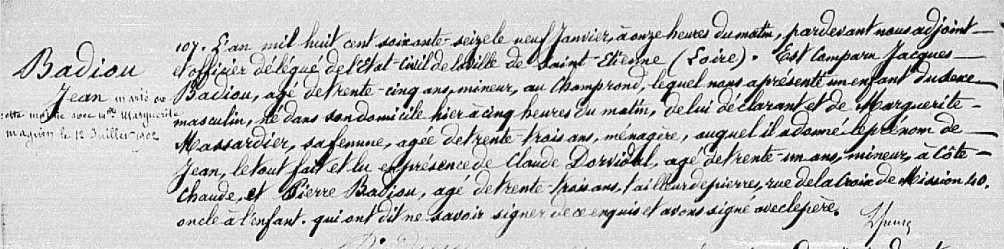 Badiou
Jean marié en
cette mairie avec Mlle Marguerite
le 12 Juillet 1902
107. L'an mil huit cent soixante-seize le neuf Janvier, à onze heures du matin, pardevant nous adjoint
et officier délégué de l'Etat-Civil de la ville de Saint-Etienne (Loire). Est Comparu Jacques
Badiou, agé de trente-cinq ans, mineur, au Champrond, lequel nous a présenté un enfant du sexe
masculin, né dans son domicile hier à cinq heures du matin, de lui déclarant et de Marguerite
Massardier, sa femme, agée de trente-trois ans, ménagère, auquel il a donné le prénom de
Jean, le tout fait et lu en présence de Claude Dorvidal, agé de trente-un ans, mineur, à Côte-
Chaude, et Pierre Badiou, agé de trente-trois ans, tailleur de pierres, rue de la Croix de Mission 40,
oncle à l'enfant. qui ont dit ne savoir signer de ce enquis et avons signé avec le père.